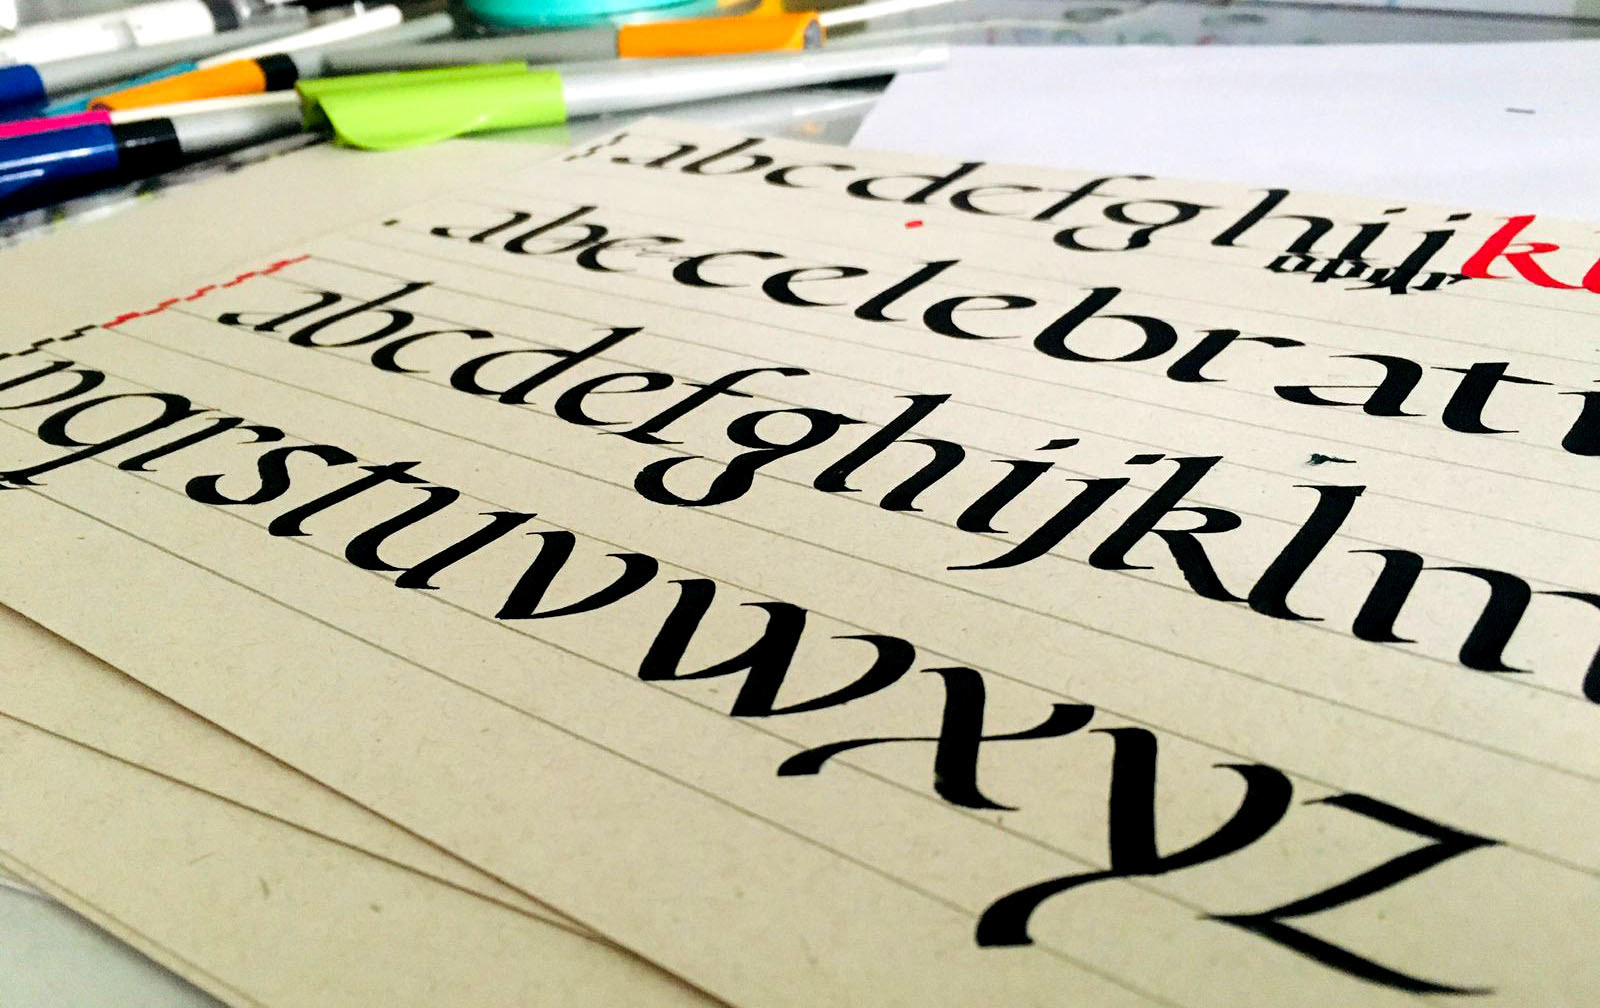 abcdefghijk
opqr
abccelebrat
abcdefghijklm
pqrstuvwxyz